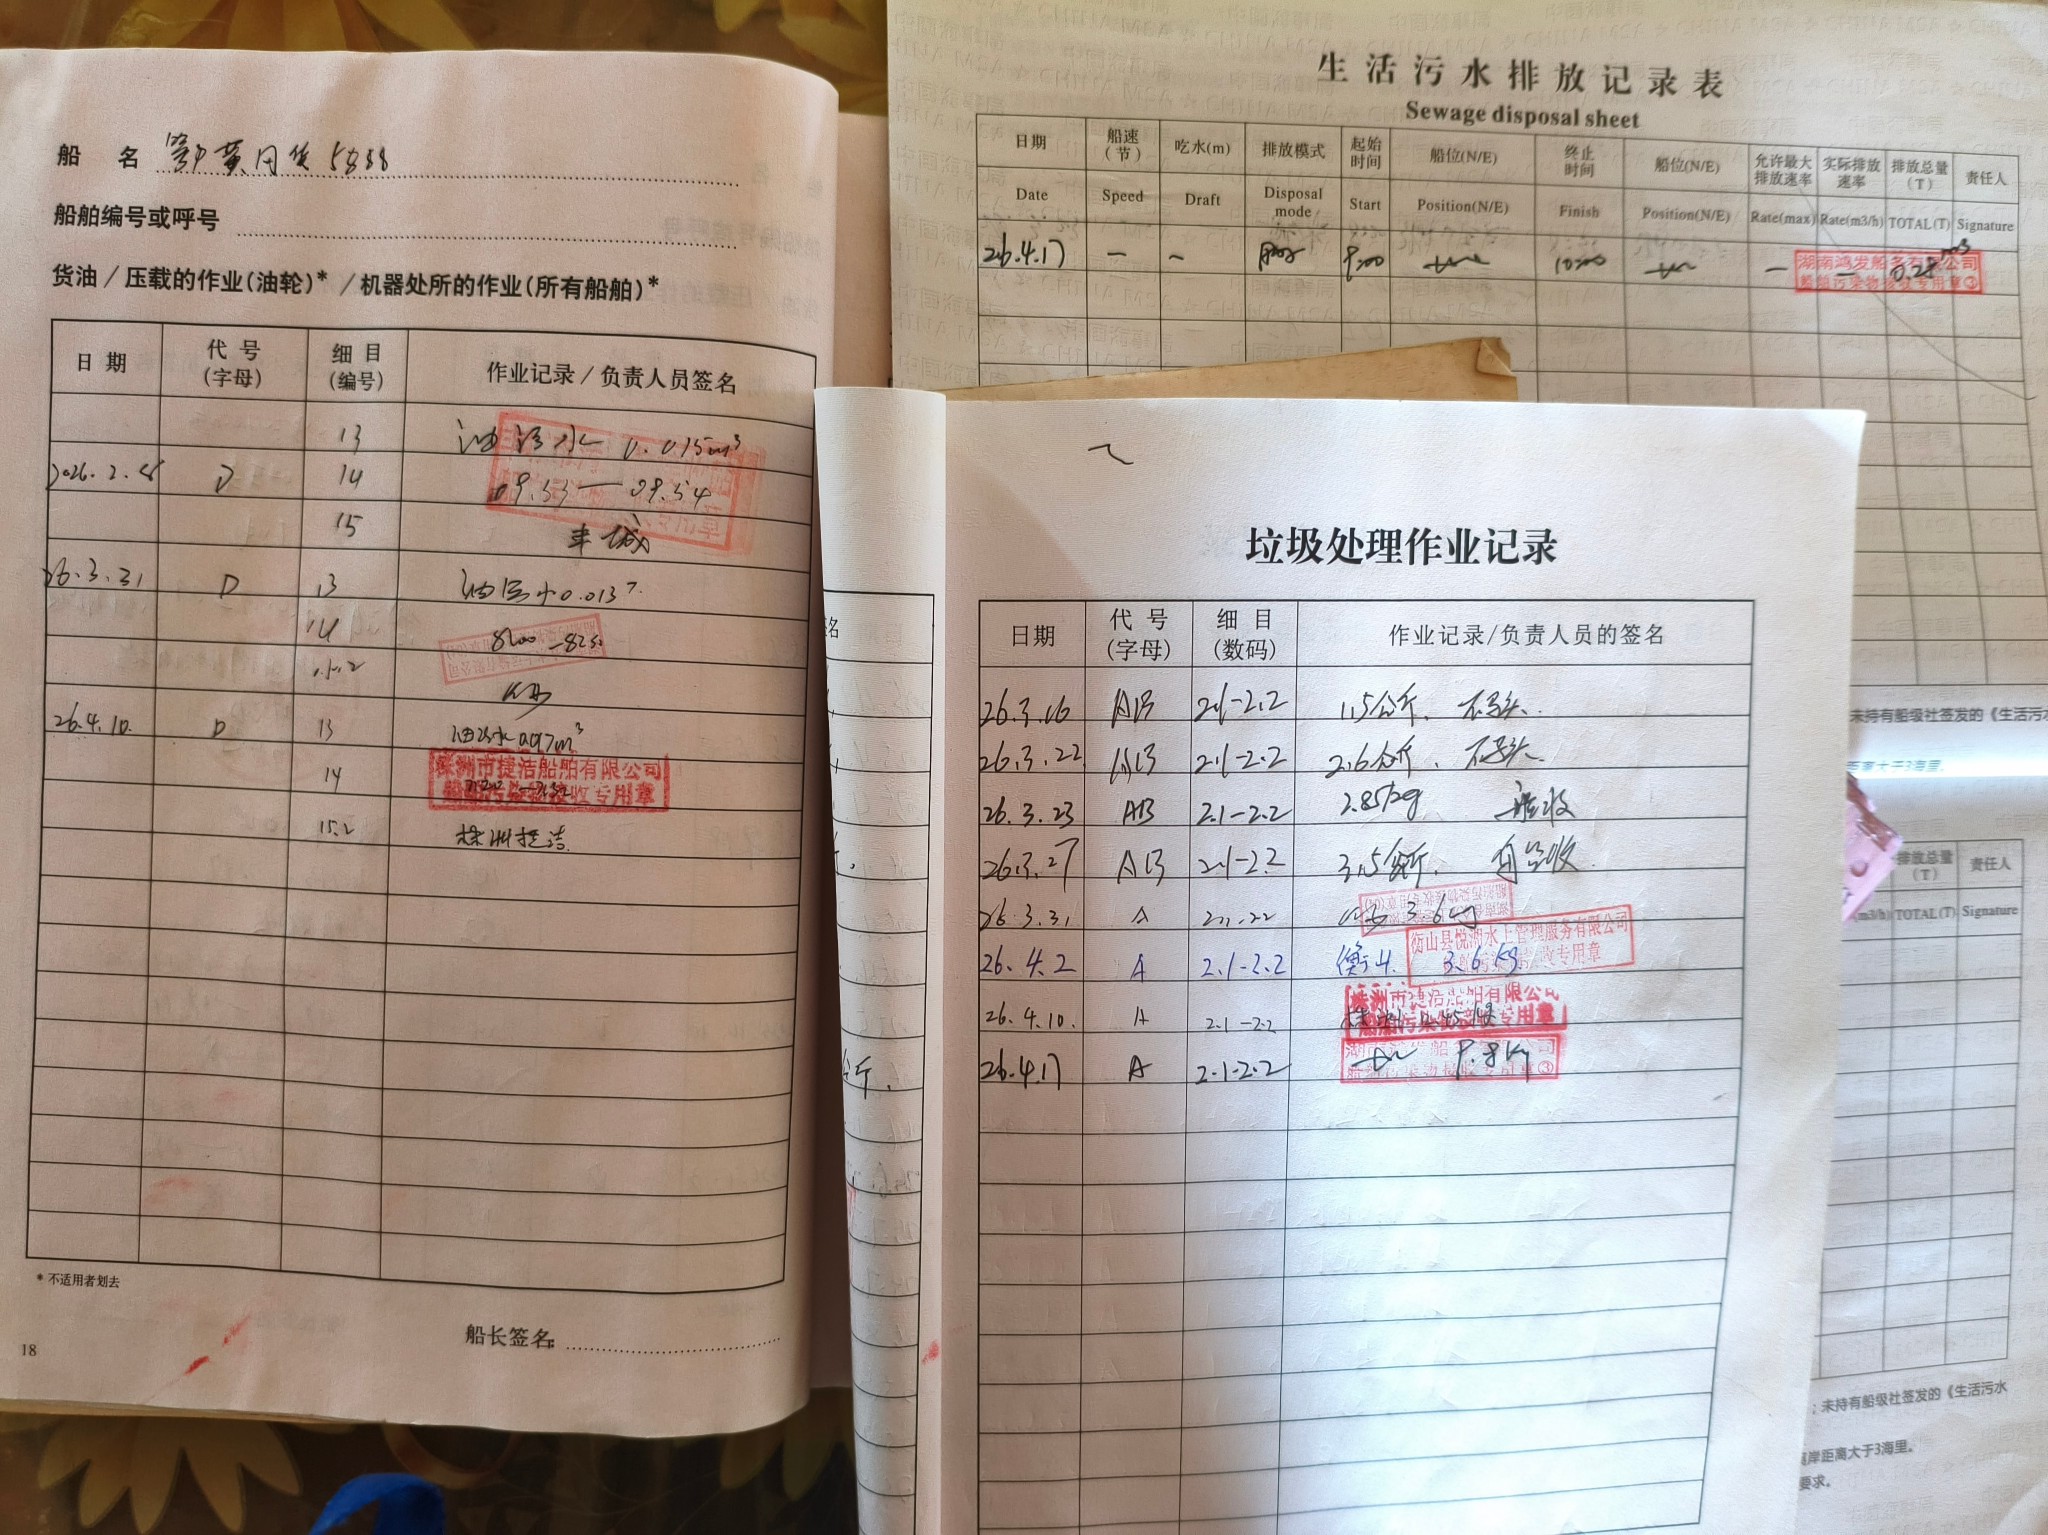 船 名 鄂黄冈货5888
船舶编号或呼号
货油/压载的作业(油轮)* /机器处所的作业(所有船舶)*
日 期 代 号 (字母) 细 目 (编号) 作业记录/负责人员签名
13 油污水 0.015m³
2026.2. D 14 09.53—09.54
15 丰城
26.3.31 D 13 油污水0.013
14 8200—825
15.2
26.4.10. D 13 油污水 m³
株洲市捷洁船舶有限公司
14
船舶污染物接收专用章
15.2 株洲捷洁
* 不适用者划去
船长签名:
18
生活污水排放记录表
Sewage disposal sheet
日期 船速(节) 吃水(m) 排放模式 起始时间 船位(N/E) 终止时间 船位(N/E) 允许最大排放速率 实际排放速率 排放总量(T) 责任人
Date Speed Draft Disposal mode Start Position(N/E) Finish Position(N/E) Rate(max) Rate(m3/h) TOTAL(T) Signature
26.4.17 — — 9:00 10:00 — — 0.28 m3
湖南鸿发船务有限公司
船舶污染物接收专用章③
垃圾处理作业记录
日期 代 号 (字母) 细 目 (数码) 作业记录/负责人员的签名
26.3.16 AB 2.1-2.2 1.5公斤、石码头
26.3.22 AB 2.1-2.2 2.6公斤、石码头
26.3.23 AB 2.1-2.2 2.85kg
26.3.27 AB 2.1-2.2 3.5公斤、
26.3.31 A 2.1-2.2 3.6kg
衡山县悦湖水上管理服务有限公司
26.4.2 A 2.1-2.2 衡山 3.6kg
株洲市捷洁船舶有限公司
26.4.10. A 2.1-2.2 株洲
船舶污染物接收专用章
26.4.17 A 2.1-2.2 9.8kg
签名
公斤.
未持有船级社签发的《生活污水
距离大于3海里.
排放总量(T) 责任人
(m3/h) TOTAL(T) Signature
;未持有船级社签发的《生活污水
岸距离大于3海里。
要求。